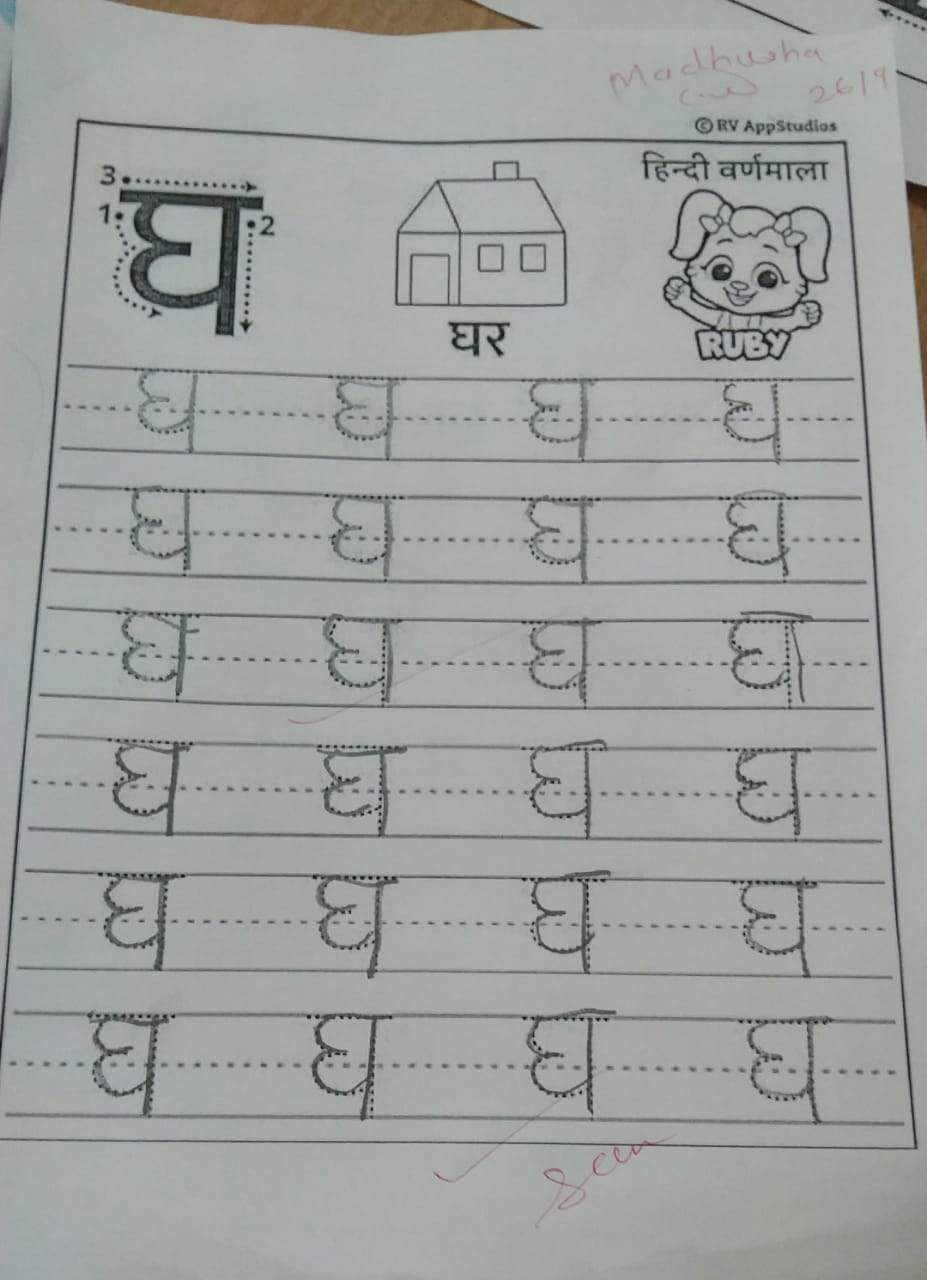 Madhusha
c.w 26/9
© RV AppStudios
हिन्दी वर्णमाला
3
1 घ 2
घर
RUBY
घ घ घ घ
घ घ घ घ
घ घ घ घ
घ घ घ घ
घ घ घ घ
घ घ घ घ
Seen